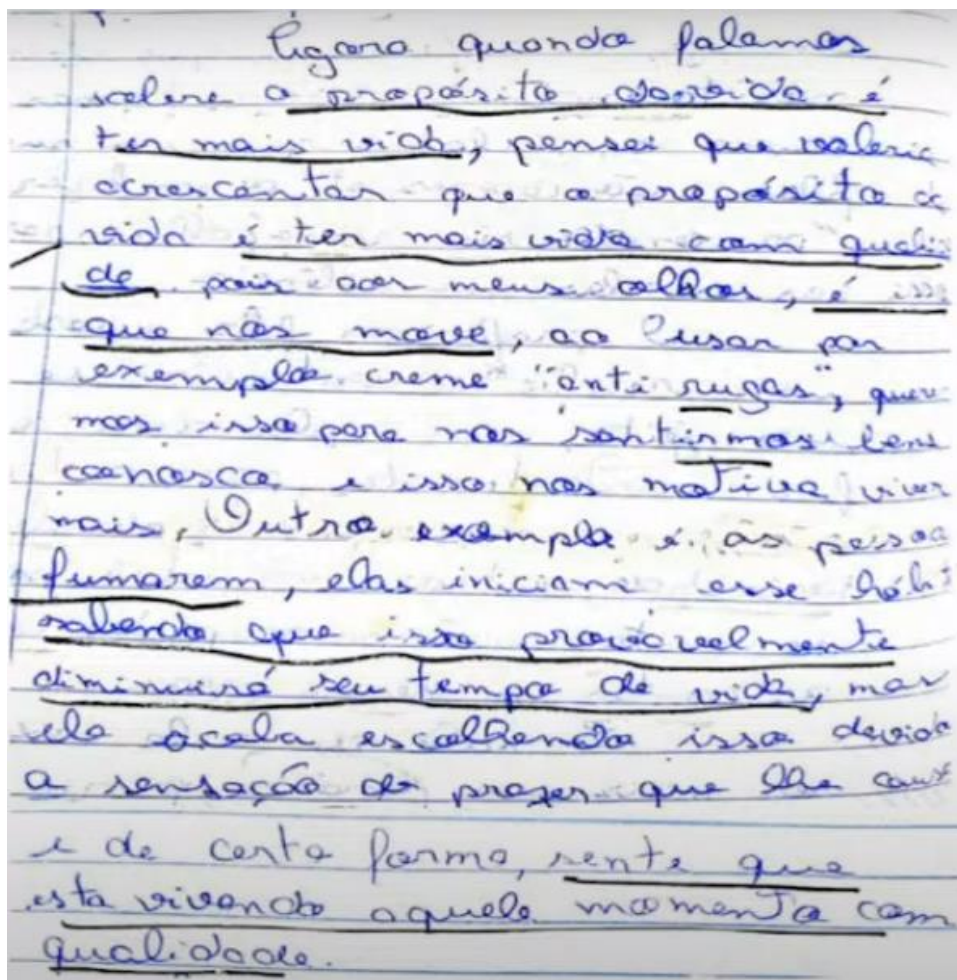 Agora quando falamos
sobre o propósito da vida é
ter mais vida, pensei que valeria
acrescentar que o propósito da
vida é ter mais vida com quali
de pois aos meus olhos, é isso
que nos move, ao usar por
exemplo creme "anti rugas", quere
mos isso para nos sentirmos bem
conosco e isso nos motiva viver
mais, Outro exemplo é as pessoa
fumarem, elas iniciam esse hábi
sabendo que isso provavelmente
diminuirá seu tempo de vida, mas
ela acaba escolhendo isso devido
a sensação de prazer que lhe caus
e de certa forma, sente que
esta vivendo aquele momento com
qualidade.